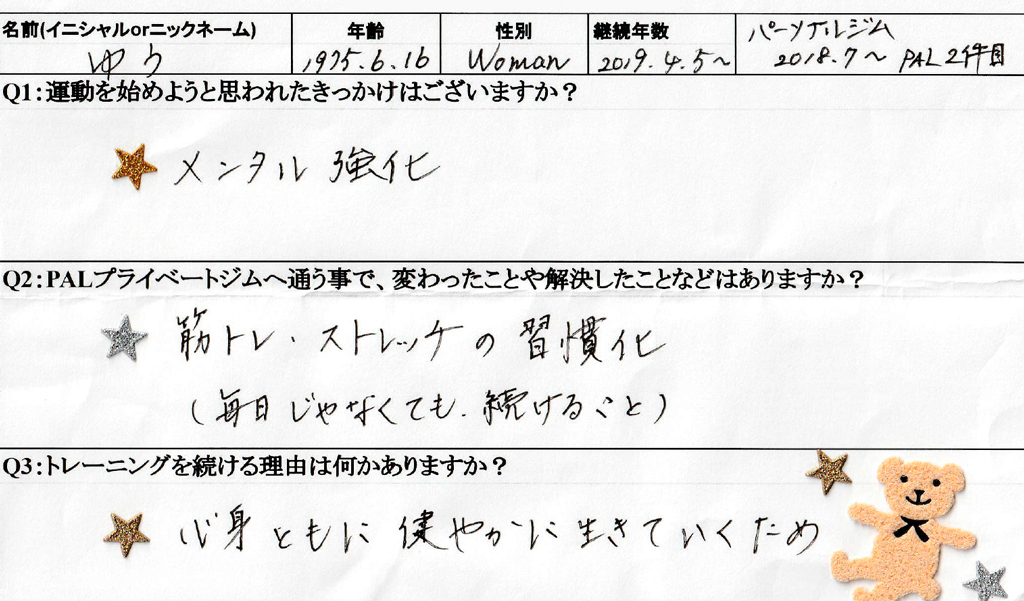 名前(イニシャルorニックネーム) 年齢 性別 継続年数 パーソナルジム
ゆう 1975.6.16 Woman 2019.4.5~ 2018.7~ PAL2件目
Q1:運動を始めようと思われたきっかけはございますか?
メンタル強化
Q2:PALプライベートジムへ通う事で、変わったことや解決したことなどはありますか?
筋トレ・ストレッチの習慣化
(毎日じゃなくても.続けること)
Q3:トレーニングを続ける理由は何かありますか?
心身ともに健やかに生きていくため